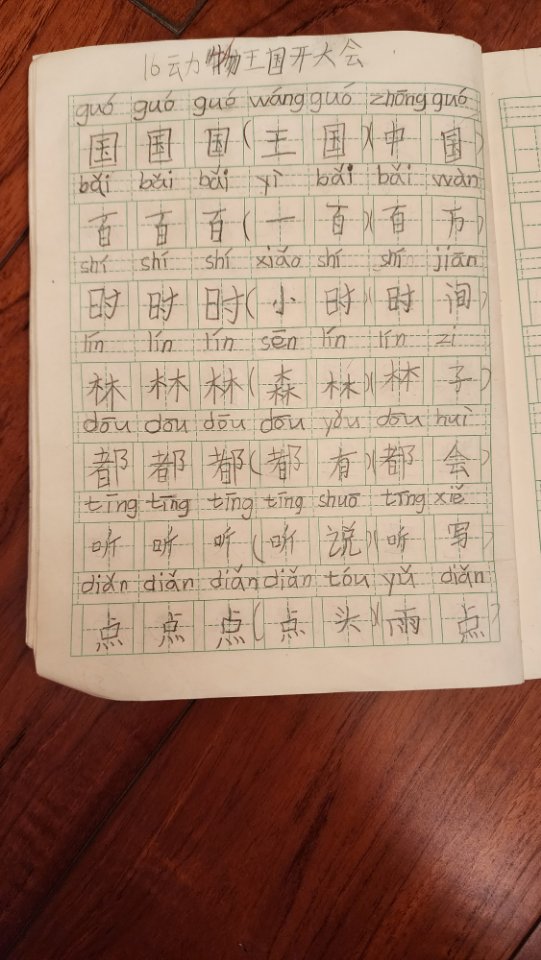 16动物王国开大会
guó guó guó wáng guó zhōng guó
国 国 国 ( 王 国 ) ( 中 国 )
bǎi bǎi bǎi yì bǎi bǎi wàn
百 百 百 ( 一 百 ) ( 百 万 )
shí shí shí xiǎo shí shí jiān
时 时 时 ( 小 时 ) ( 时 间 )
lín lín lín sēn lín lín zi
林 林 林 ( 森 林 ) ( 林 子 )
dōu dōu dōu dōu yǒu dōu huì
都 都 都 ( 都 有 ) ( 都 会 )
tīng tīng tīng tīng shuō tīng xiě
听 听 听 ( 听 说 ) ( 听 写 )
diǎn diǎn diǎn diǎn tóu yǔ diǎn
点 点 点 ( 点 头 ) ( 雨 点 )